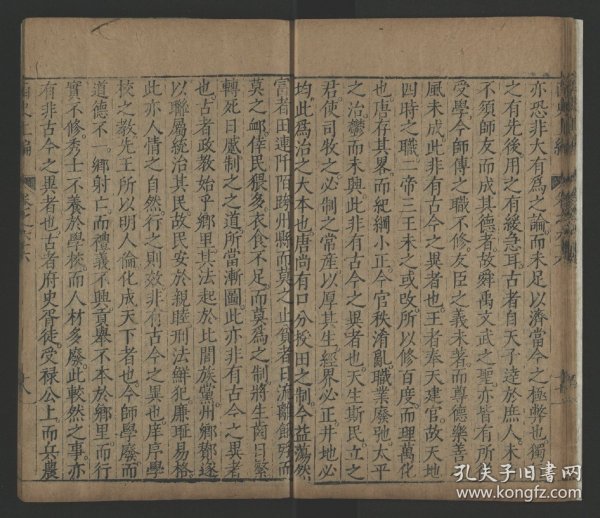 亦恐非大有為之論而未足以濟當今之極弊也獨
之有先後用之有緩急耳古者自天子達於庶人未
不須師友而成其德者故舜禹文武之聖亦皆有所
受學今師傅之職不修友臣之義未著而尊德樂善
風未成此非有古今之異者也王者奉天建官故天地
四時之職二帝三王未之或改所以修百度而理萬化
也唐存其畧而紀綱小正今官秩淆亂職業廢弛太平
之治鬱而未興此非有古今之異者也天生斯民立之
君使司牧之必制之常產以厚其生經界必正井地必
均此為治之大本也唐尚有口分授田之制今益蕩然
富者田連阡陌跨州縣而莫之止貧者日流離餓殍而
莫之卹倖民猥多衣食不足而莫為之制將生齒日繁
轉死日蹙制之之道所當漸圖此亦非有古今之異者
也古者政教始乎鄉里其法起於比閭族黨州鄉酇遂
以聯屬統治其民故民安於親睦刑法鮮犯廉恥易格
此亦人情之自然行之則效非有古今之異也庠序學
校之教先王所以明人倫化成天下者也今師學廢而
道德不一鄉射亡而禮義不興貢舉不本於鄉里而行
實不修秀士不養於學校而人材多廢此較然之事亦
有非古今之異者也古者府史胥徒受祿公上而兵農
史正編 卷之六 八
孔夫子旧书网
www.kongfz.com